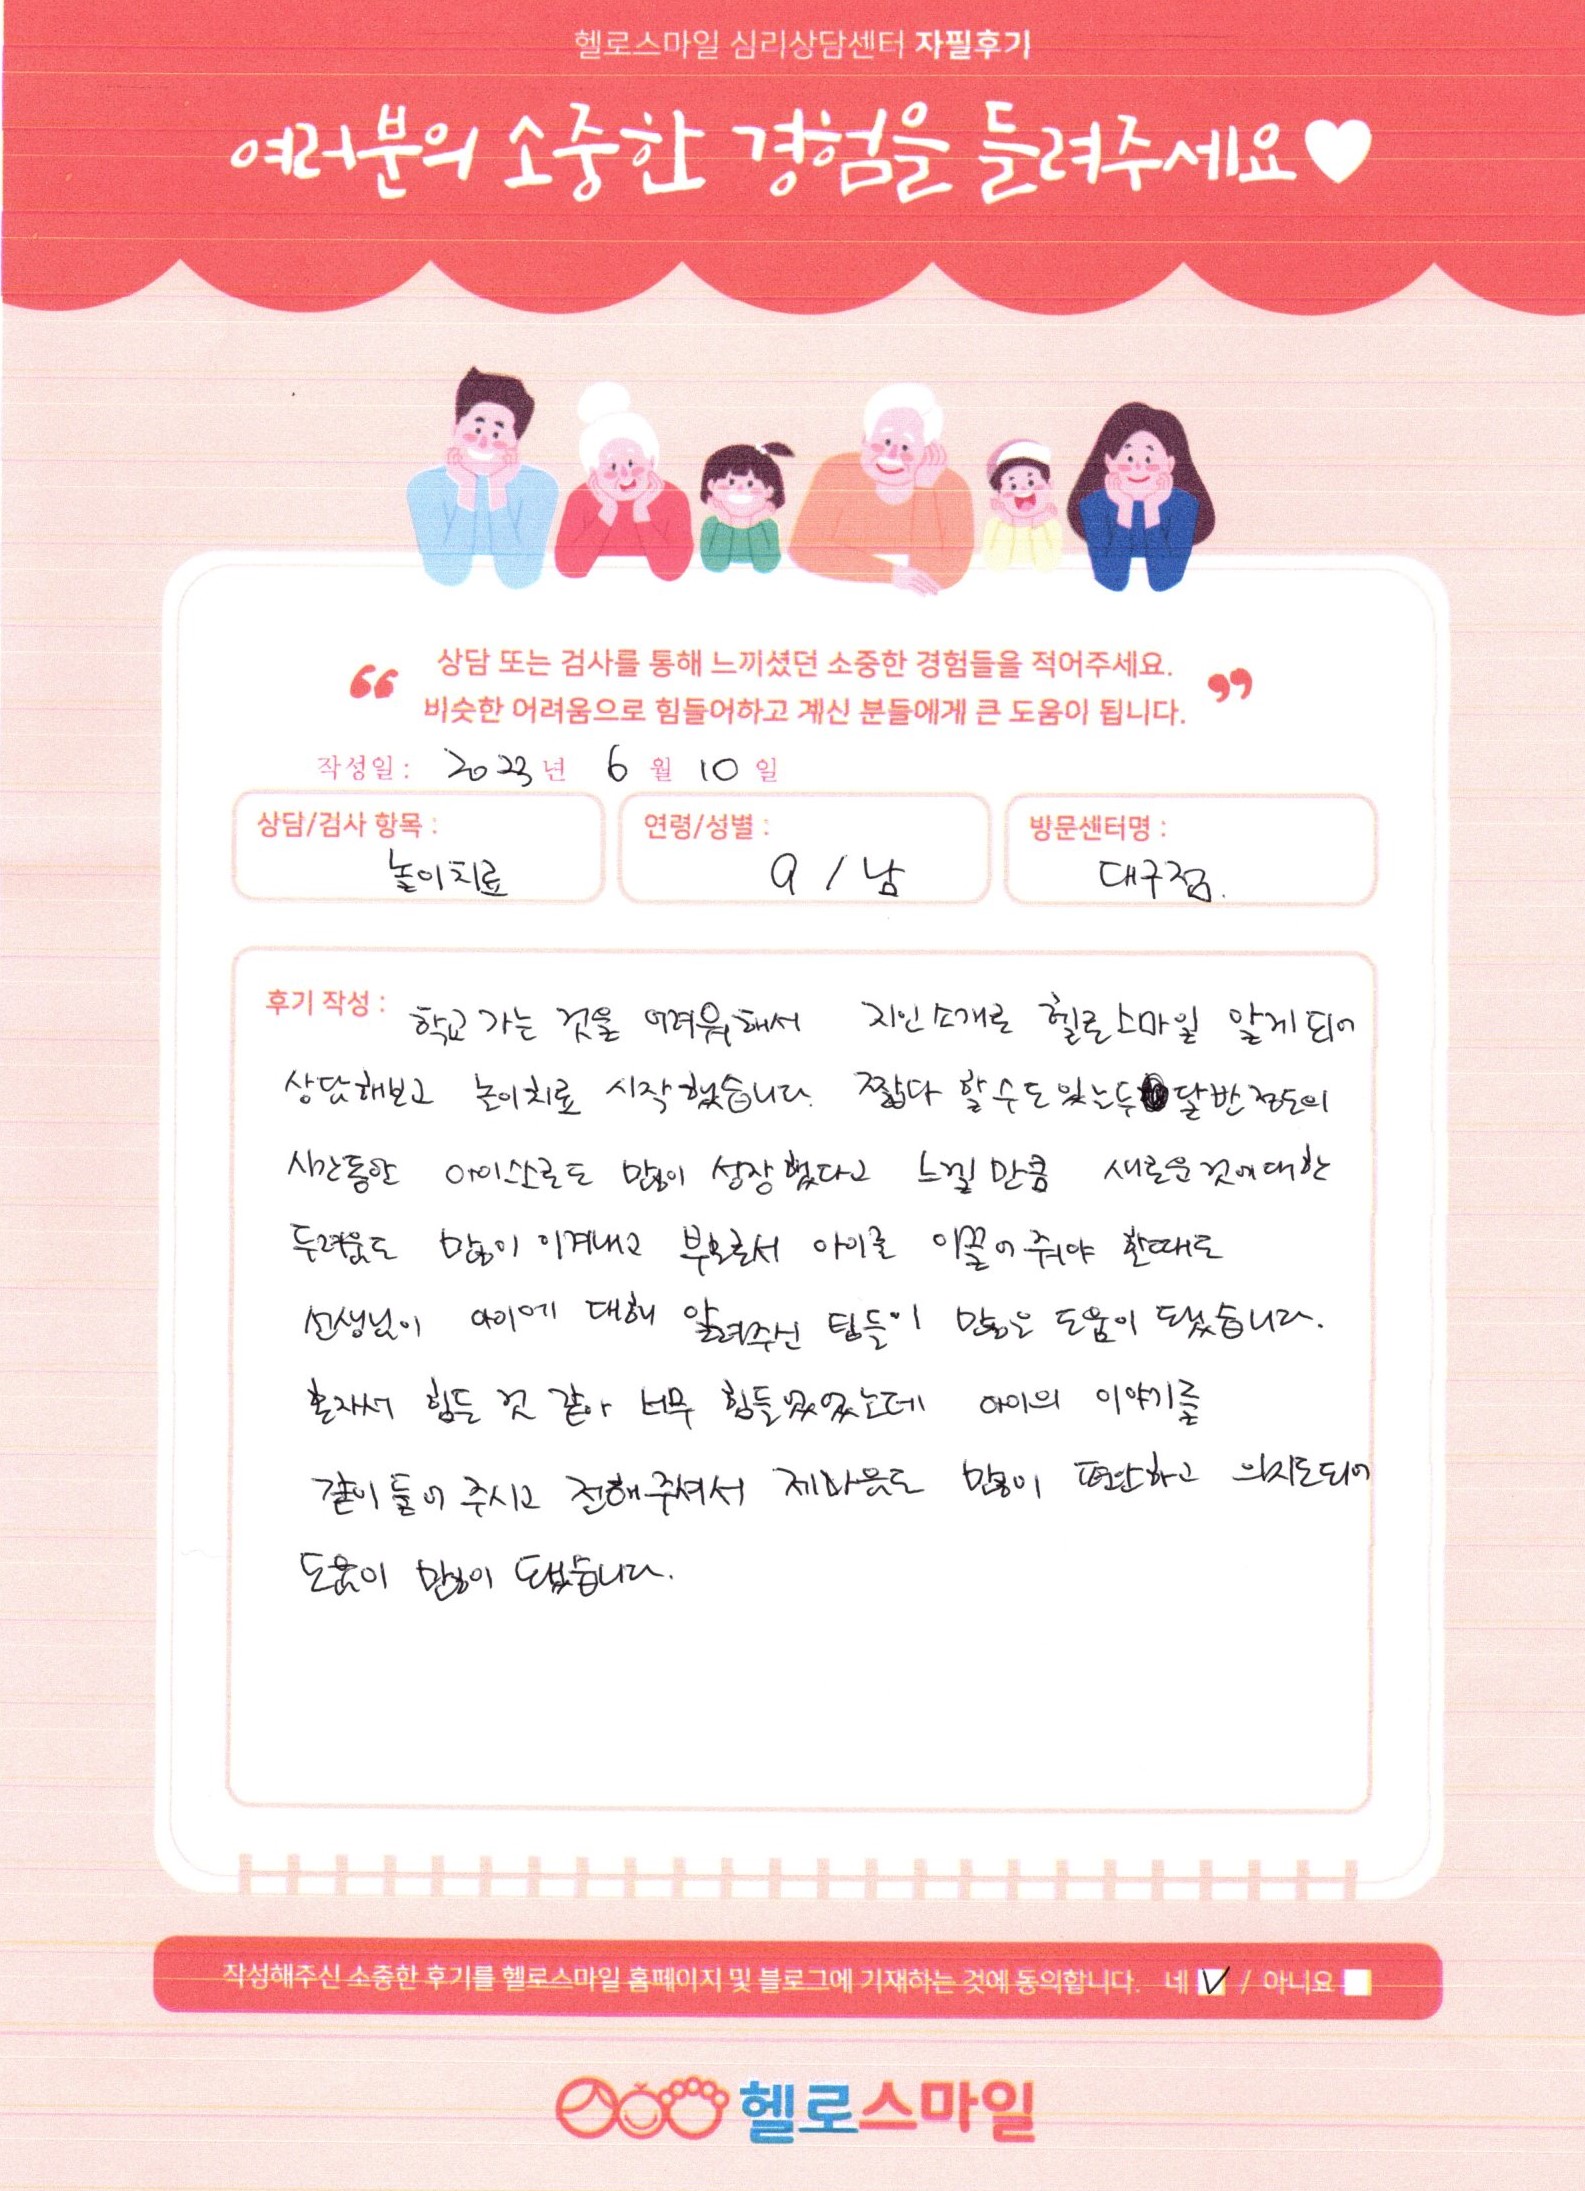 헬로스마일 심리상담센터 자필후기
여러분의 소중한 경험을 들려주세요♥
“ 상담 또는 검사를 통해 느끼셨던 소중한 경험들을 적어주세요. ”
비슷한 어려움으로 힘들어하고 계신 분들에게 큰 도움이 됩니다.
작성일 : 2023년 6월 10일
상담/검사 항목 : 연령/성별 : 방문센터명 :
놀이치료 9 / 남 대구점.
후기 작성 : 학교가는 것을 어려워해서 지인소개로 헬로스마일 알게되어
상담해보고 놀이치료 시작했습니다. 짧다 할수도있는두 달반정도의
시간동안 아이스스로도 많이 성장했다고 느낄만큼 새로운것에대한
두려움도 많이 이겨내고 부모로서 아이를 이끌어줘야 할때도
선생님이 아이에 대해 알려주신 팁들이 많은 도움이 됐습니다.
혼자서 힘든 것 같아 너무 힘들었었는데 아이의 이야기를
같이들어주시고 전해주셔서 제마음도 많이 편안하고 의지도되어
도움이 많이 됐습니다.
작성해주신 소중한 후기를 헬로스마일 홈페이지 및 블로그에 기재하는 것에 동의합니다. 네 V / 아니요
헬로스마일